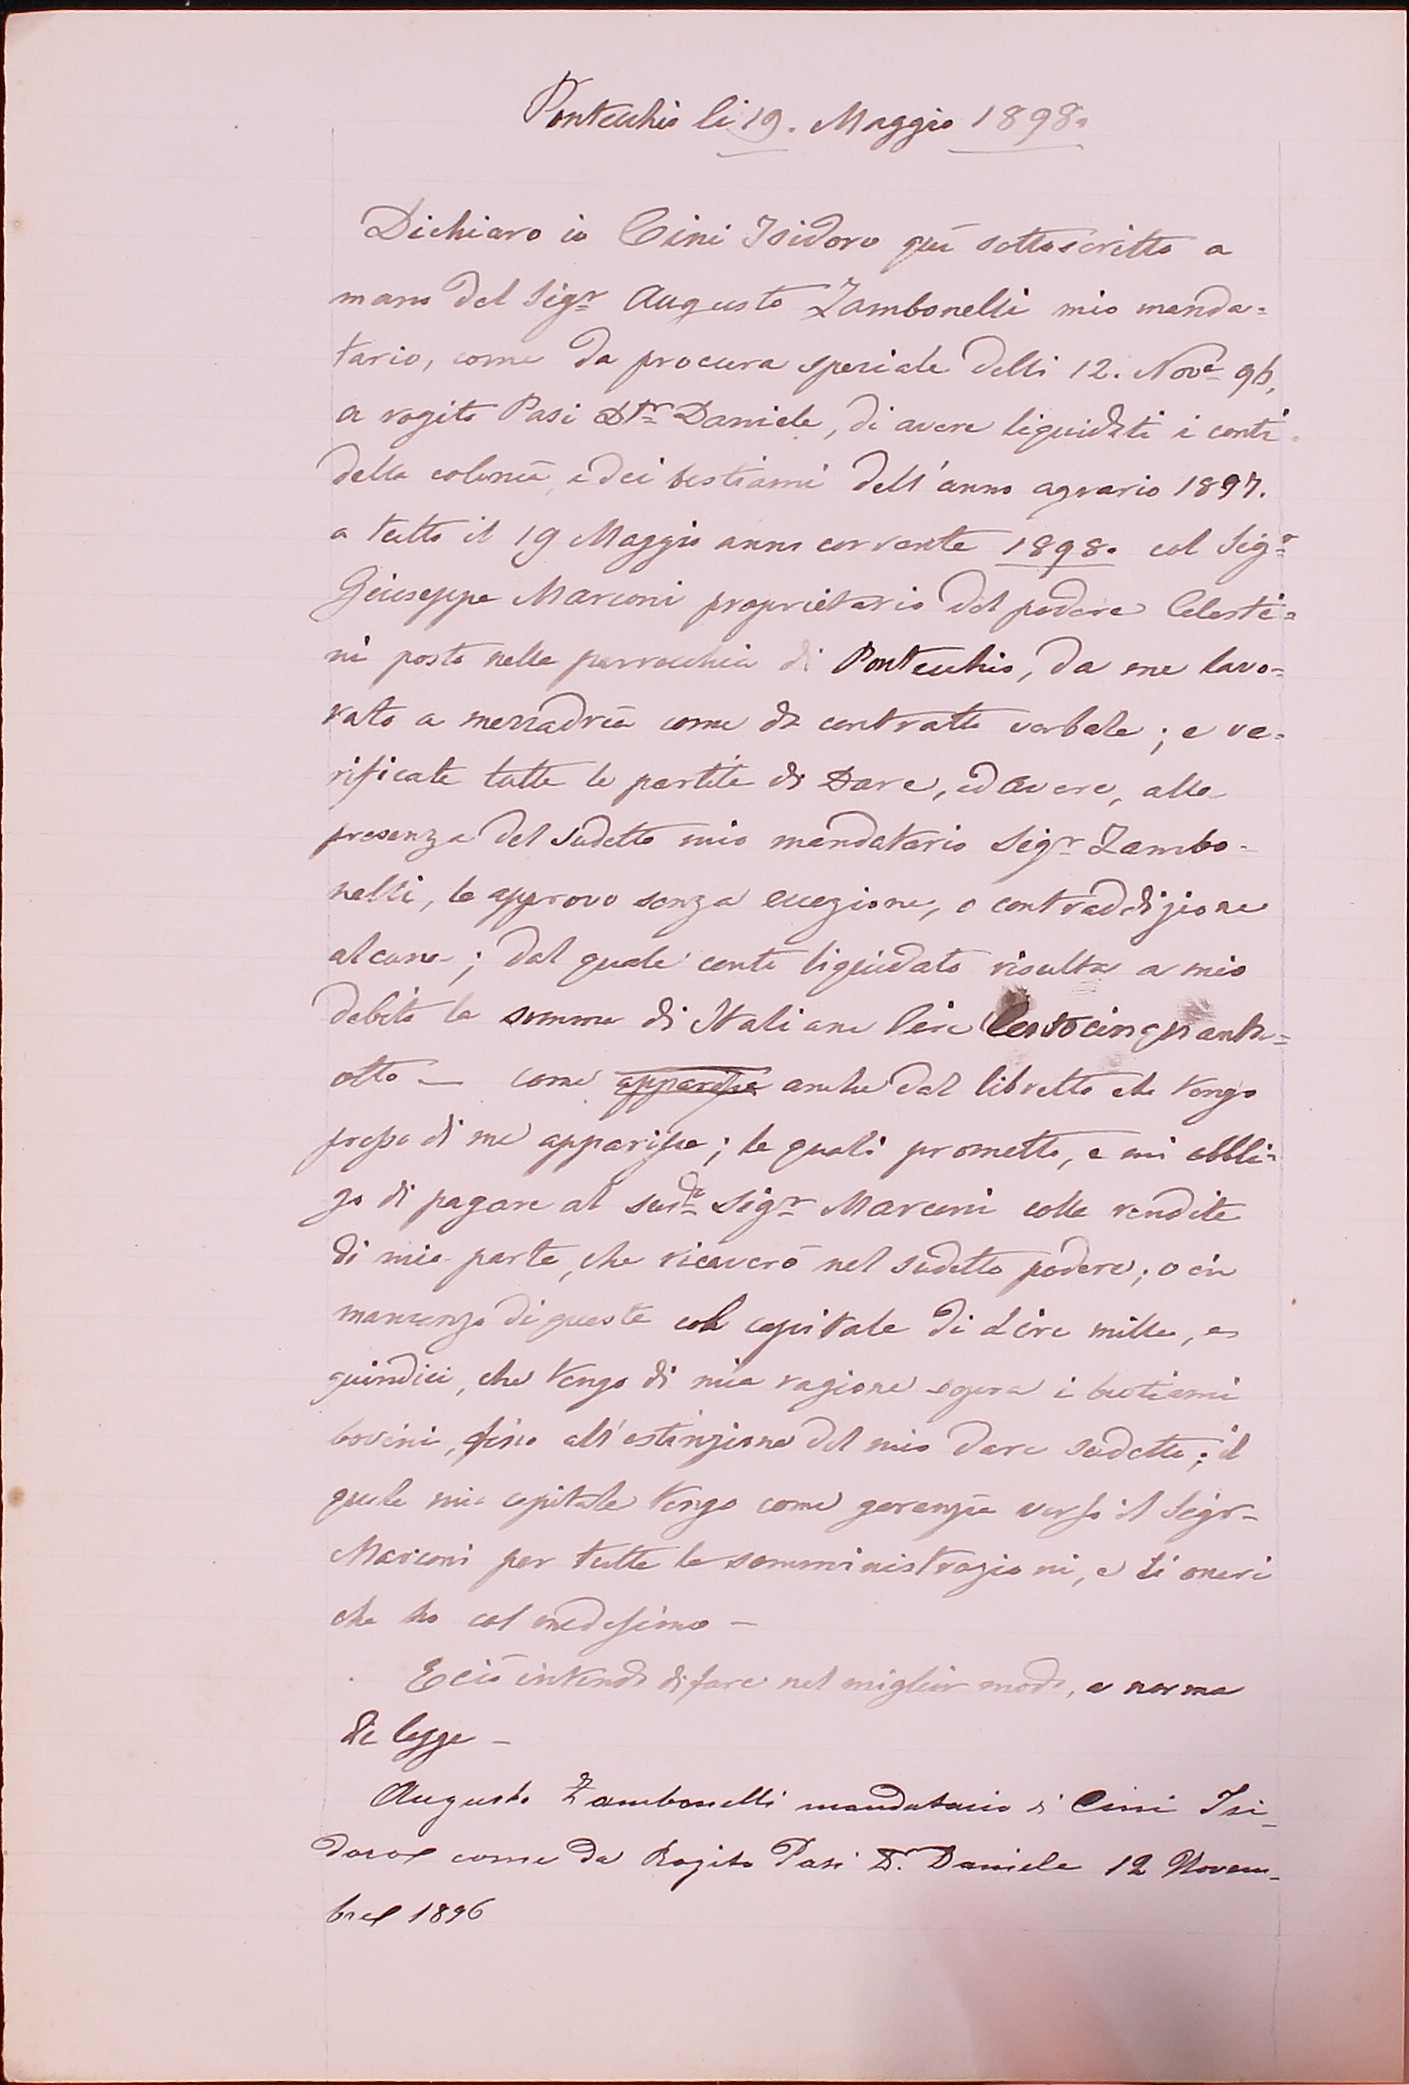 Pontecchio li 19. Maggio 1898.
Dichiaro io Cini Isidoro quì sottoscritto a
mano del Sigr Augusto Zambonelli mio manda=
tario, come da procura speziale delli 12. Nove 96,
a rogito Pasi Dtr Daniele, di avere liquidati i conti
della colonìa, e dei bestiami dell'anno agrario 1897.
a tutto il 19 Maggio anno corrente 1898. col Sigr
Giuseppe Marconi proprietario del podere Celesti=
ni posto nella parrocchia di Pontecchio, da me lavo=
rato a mezzadrìa come da contratto verbale; e ve=
rificate tutte le partite di Dare, ed Avere, alla
presenza del sudetto mio mandatario Sigr Zambo-
nelli, le approvo senza eccezione, o contraddizione
alcuna; dal quale conto liquidato risulta a mio
debito la somma di Italiane Lire Centocinquanta=
otto — come apparisce anche dal libretto che tengo
presso di me apparisce; le quali prometto, e mi obbli=
go di pagare al sudo Sigr Marconi colle rendite
di mia parte, che ricaverò nel sudetto podere; o in
mancanza di queste col capitale di Lire mille, e
quindici, che tengo di mia ragione sopra i bestiami
bovini, fino all'estinzione del mio dare sudetto; il
quale mio capitale tengo come garanzìa verso il Sigr
Marconi per tutte le somministrazioni, e li oneri
che ho col medesimo —
E ciò intendo di fare nel miglior modo, a norma
di legge —
Augusto Zambonelli mandatario di Cini Isi-
doro come da Rogito Pasi Dr. Daniele 12 Novem-
bre 1896